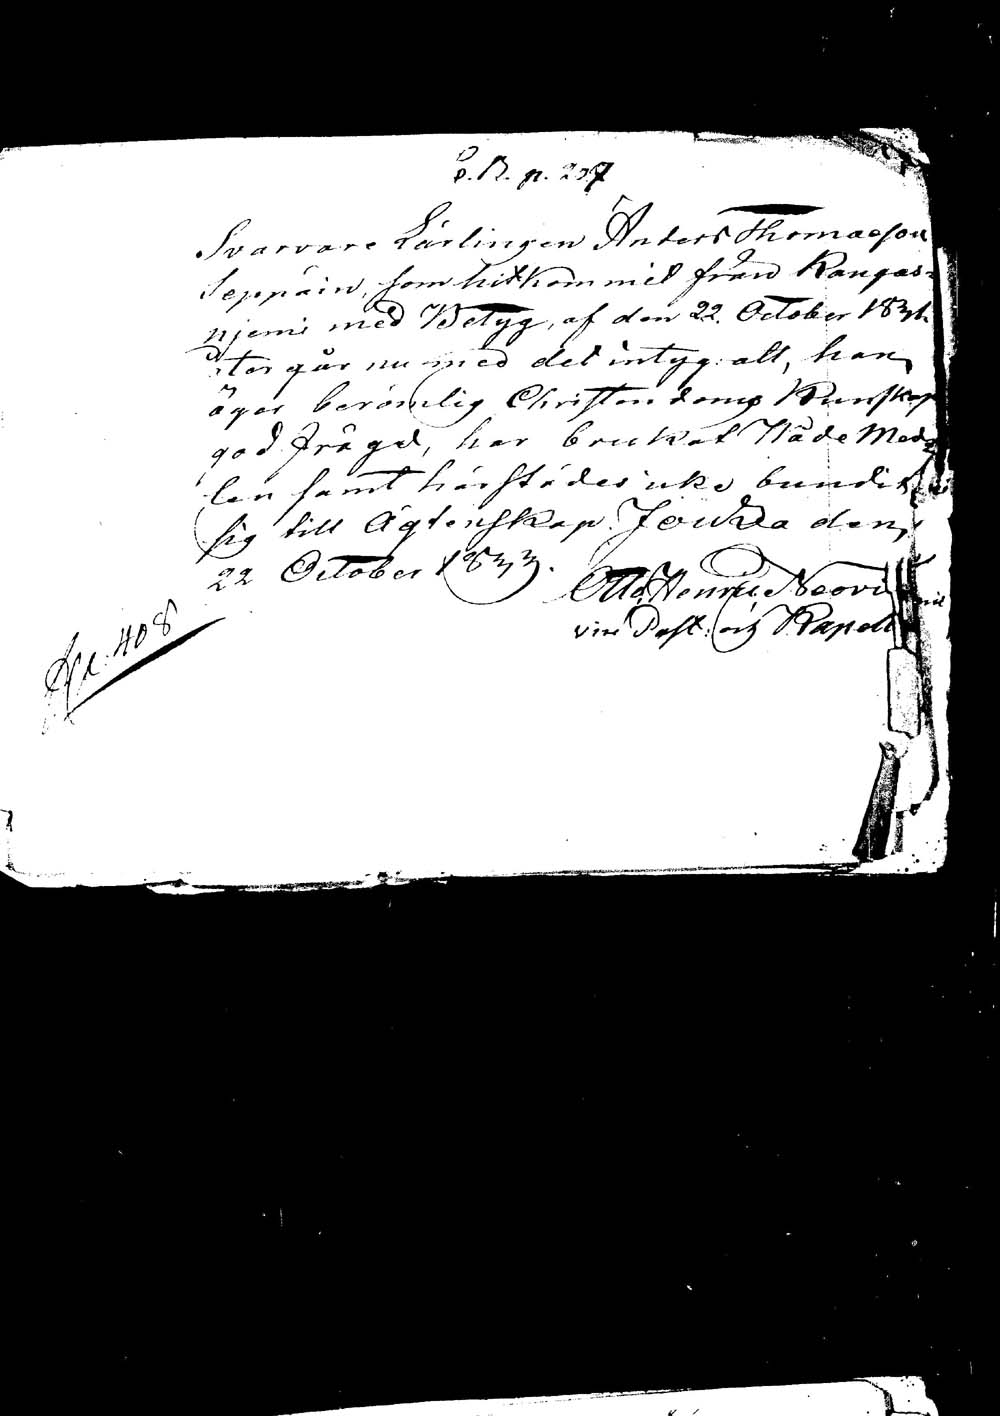 C.B. p. 207
Svarvare Lärlingen Anders Thomaeson
Seppäin, som hitkommit från Kangas=
njemi med Betyg, af den 22. October
återgår nu med det intyg: att, han
äger berömlig Christendoms Kunskap
god frägd, har brukat Nåde Med=
len samt härstädes icke bundit
sig till Ägtenskap. Joutza den
22 October 1833.
Otto Henric Neovi
vice Past: och Kapell
408